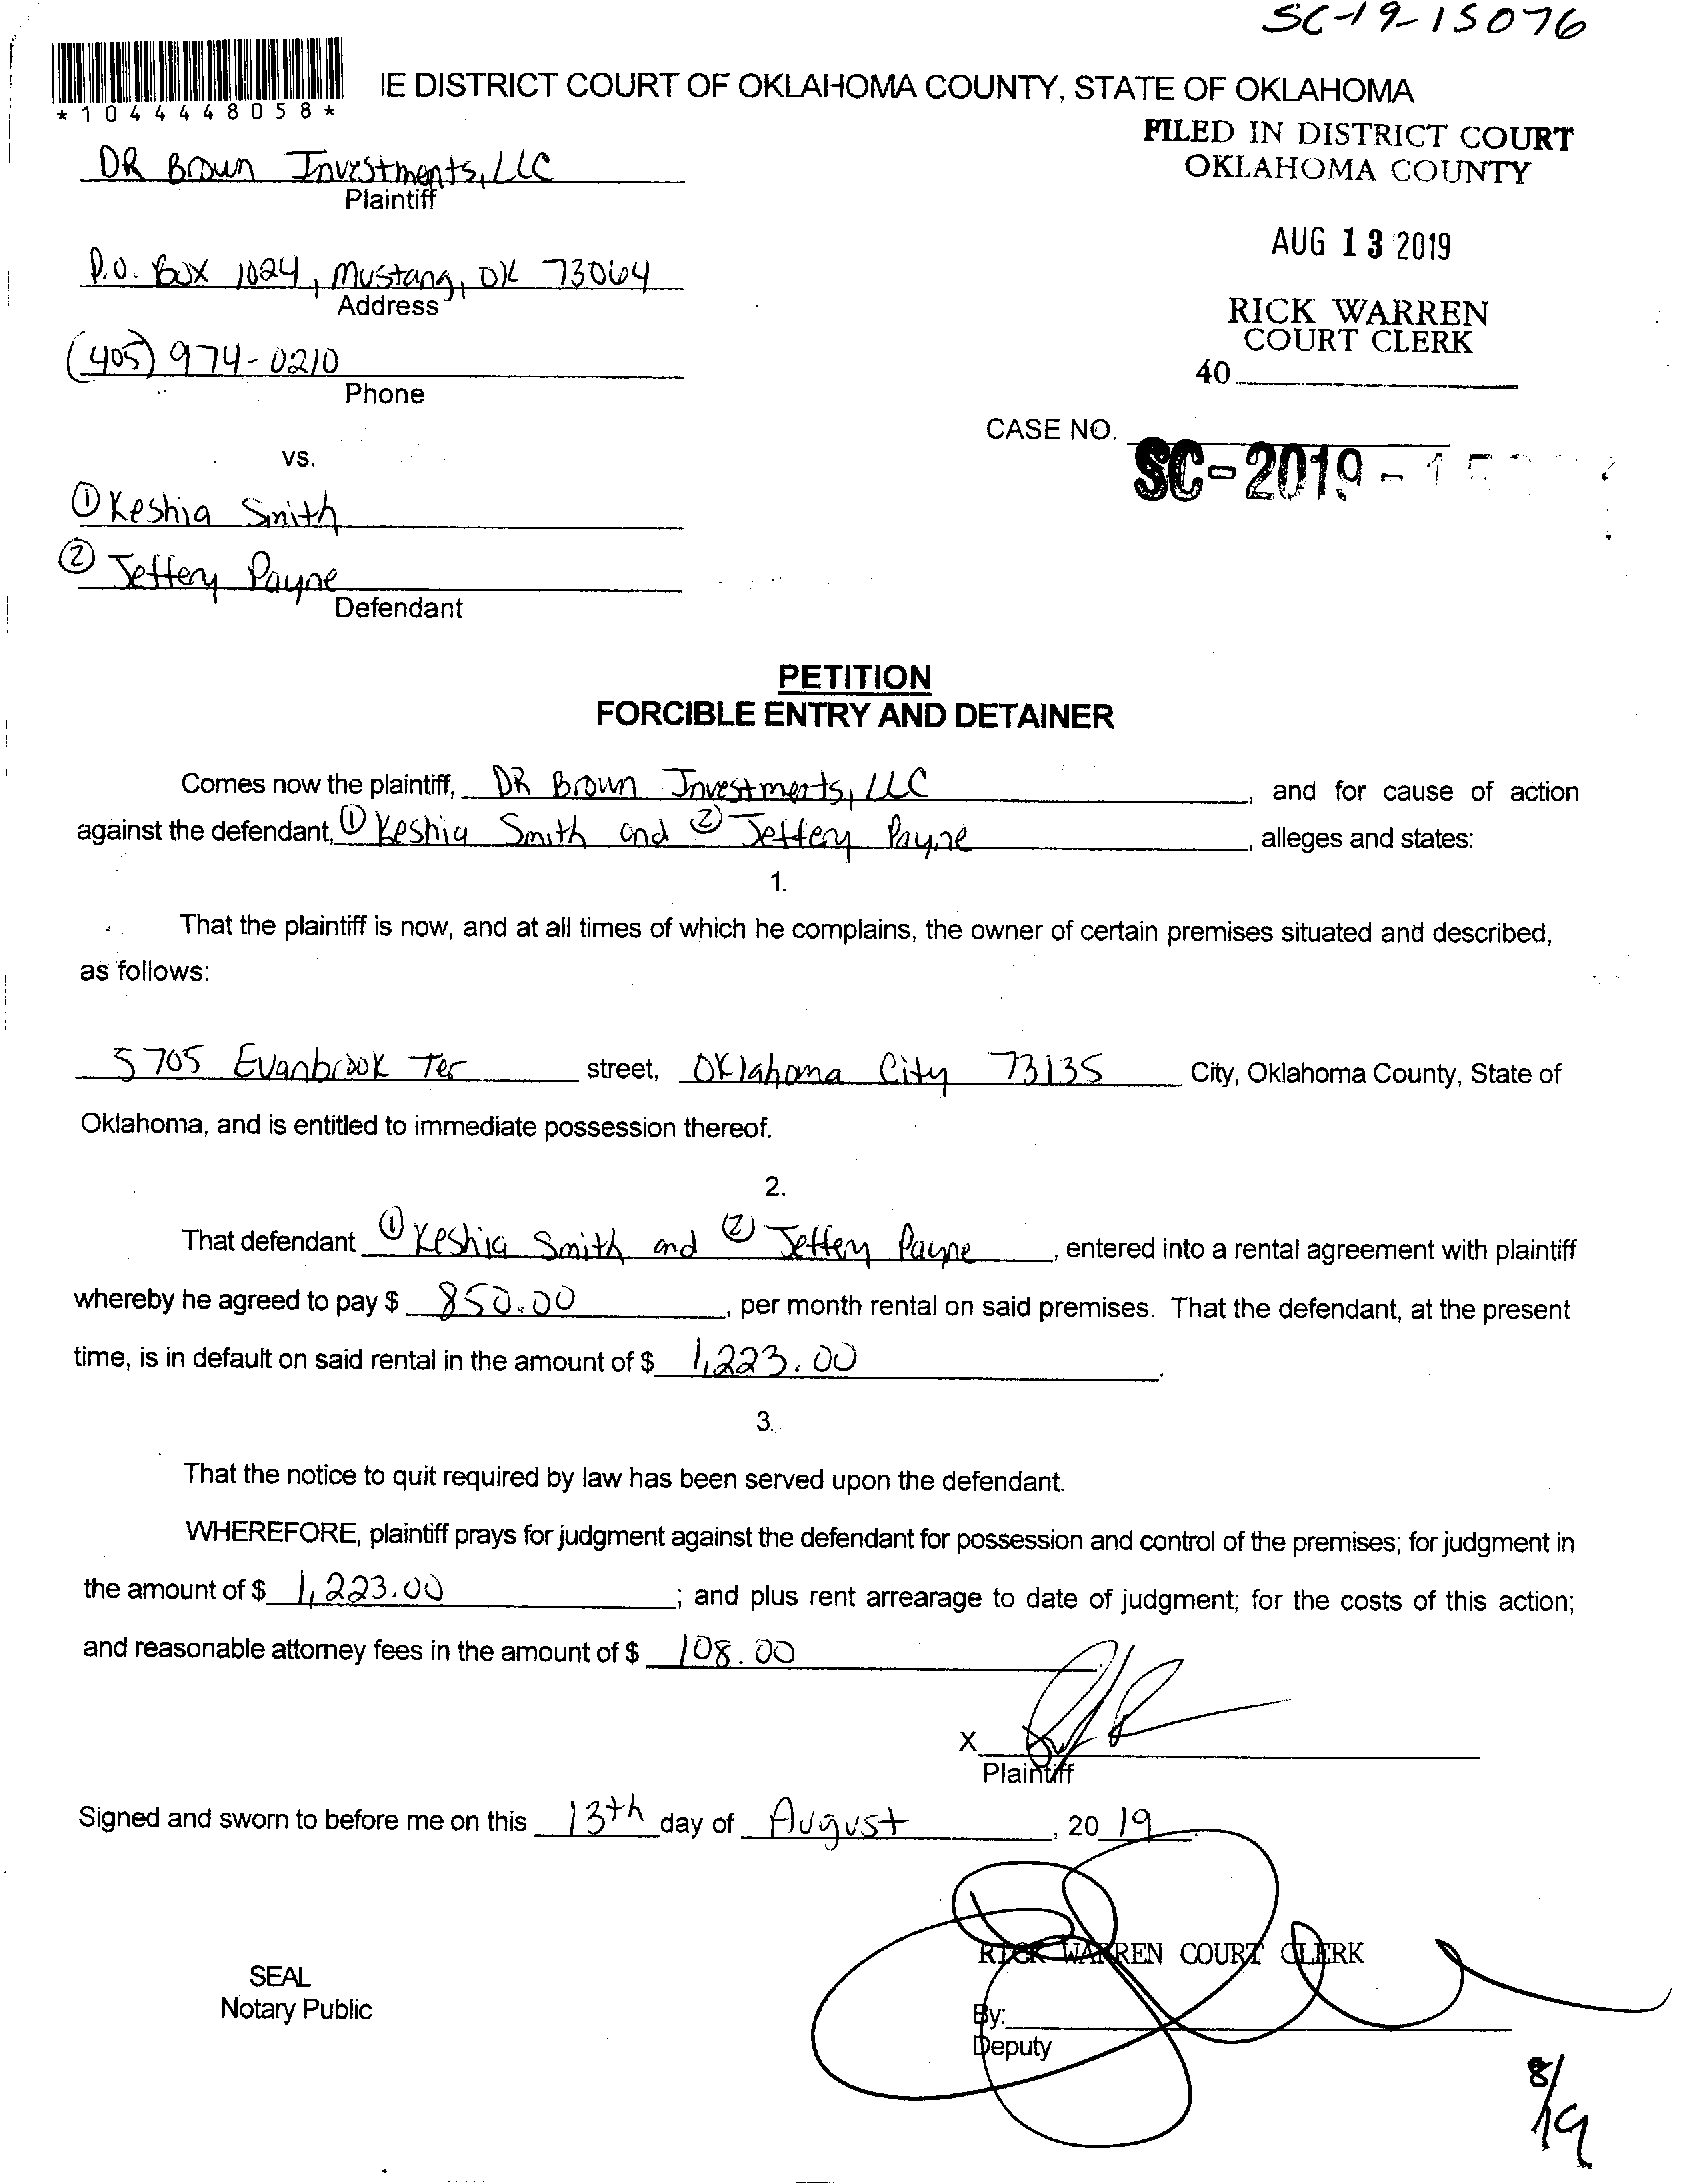 SC-19-15076
*1044448058*
IE DISTRICT COURT OF OKLAHOMA COUNTY, STATE OF OKLAHOMA
FILED IN DISTRICT COURT
OKLAHOMA COUNTY
DR Brown Investments, LLC
Plaintiff
AUG 13 2019
P.O. Box 1024, Mustang, OK 73064
Address
RICK WARREN
COURT CLERK
(405) 974-0210
Phone
40
CASE NO.
SC-2019-15
vs.
① Keshia Smith
② Jeffery Payne
Defendant
PETITION
FORCIBLE ENTRY AND DETAINER
Comes now the plaintiff, DR Brown Investments, LLC, and for cause of action
against the defendant, ① Keshia Smith and ② Jeffery Payne, alleges and states:
1.
That the plaintiff is now, and at all times of which he complains, the owner of certain premises situated and described,
as follows:
5705 Evanbrook Ter street, Oklahoma City 73135 City, Oklahoma County, State of
Oklahoma, and is entitled to immediate possession thereof.
2.
That defendant ① Keshia Smith and ② Jeffery Payne, entered into a rental agreement with plaintiff
whereby he agreed to pay $ 850.00, per month rental on said premises. That the defendant, at the present
time, is in default on said rental in the amount of $ 1,223.00.
3.
That the notice to quit required by law has been served upon the defendant.
WHEREFORE, plaintiff prays for judgment against the defendant for possession and control of the premises; for judgment in
the amount of $ 1,223.00; and plus rent arrearage to date of judgment; for the costs of this action;
and reasonable attorney fees in the amount of $ 108.00
X
Plaintiff
Signed and sworn to before me on this 13th day of August, 20 19
RICK WARREN COURT CLERK
SEAL
Notary Public
By:
Deputy
8/19